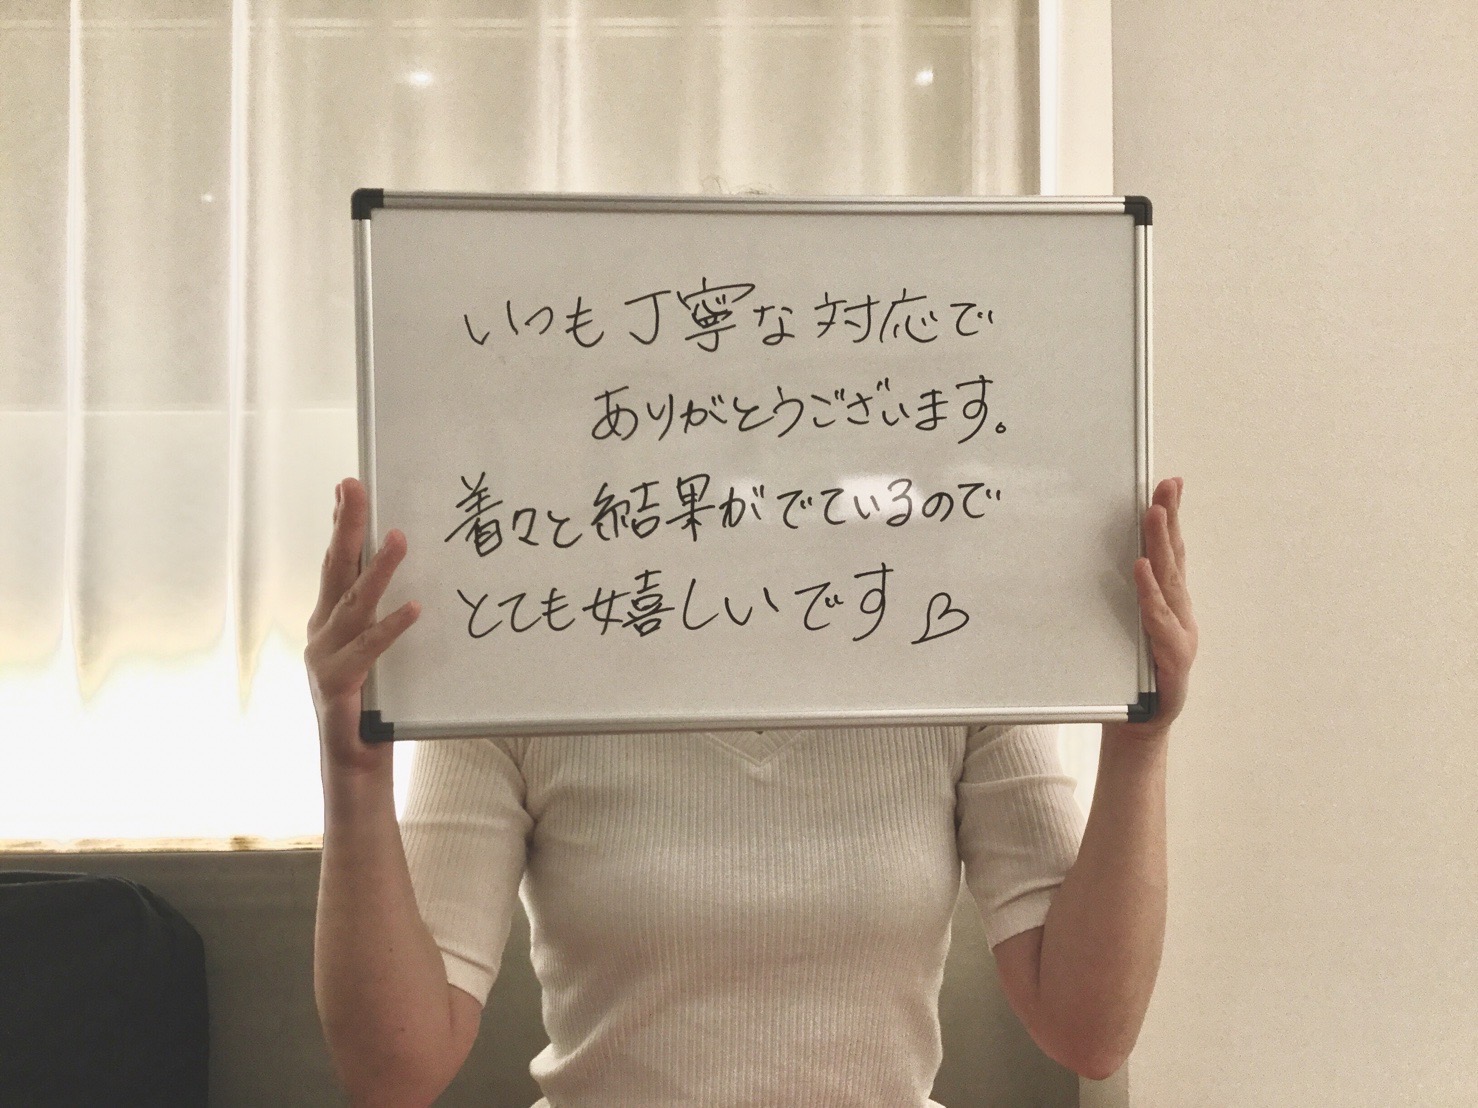 いつも丁寧な対応で
ありがとうございます。
着々と結果がでているので
とても嬉しいです♡